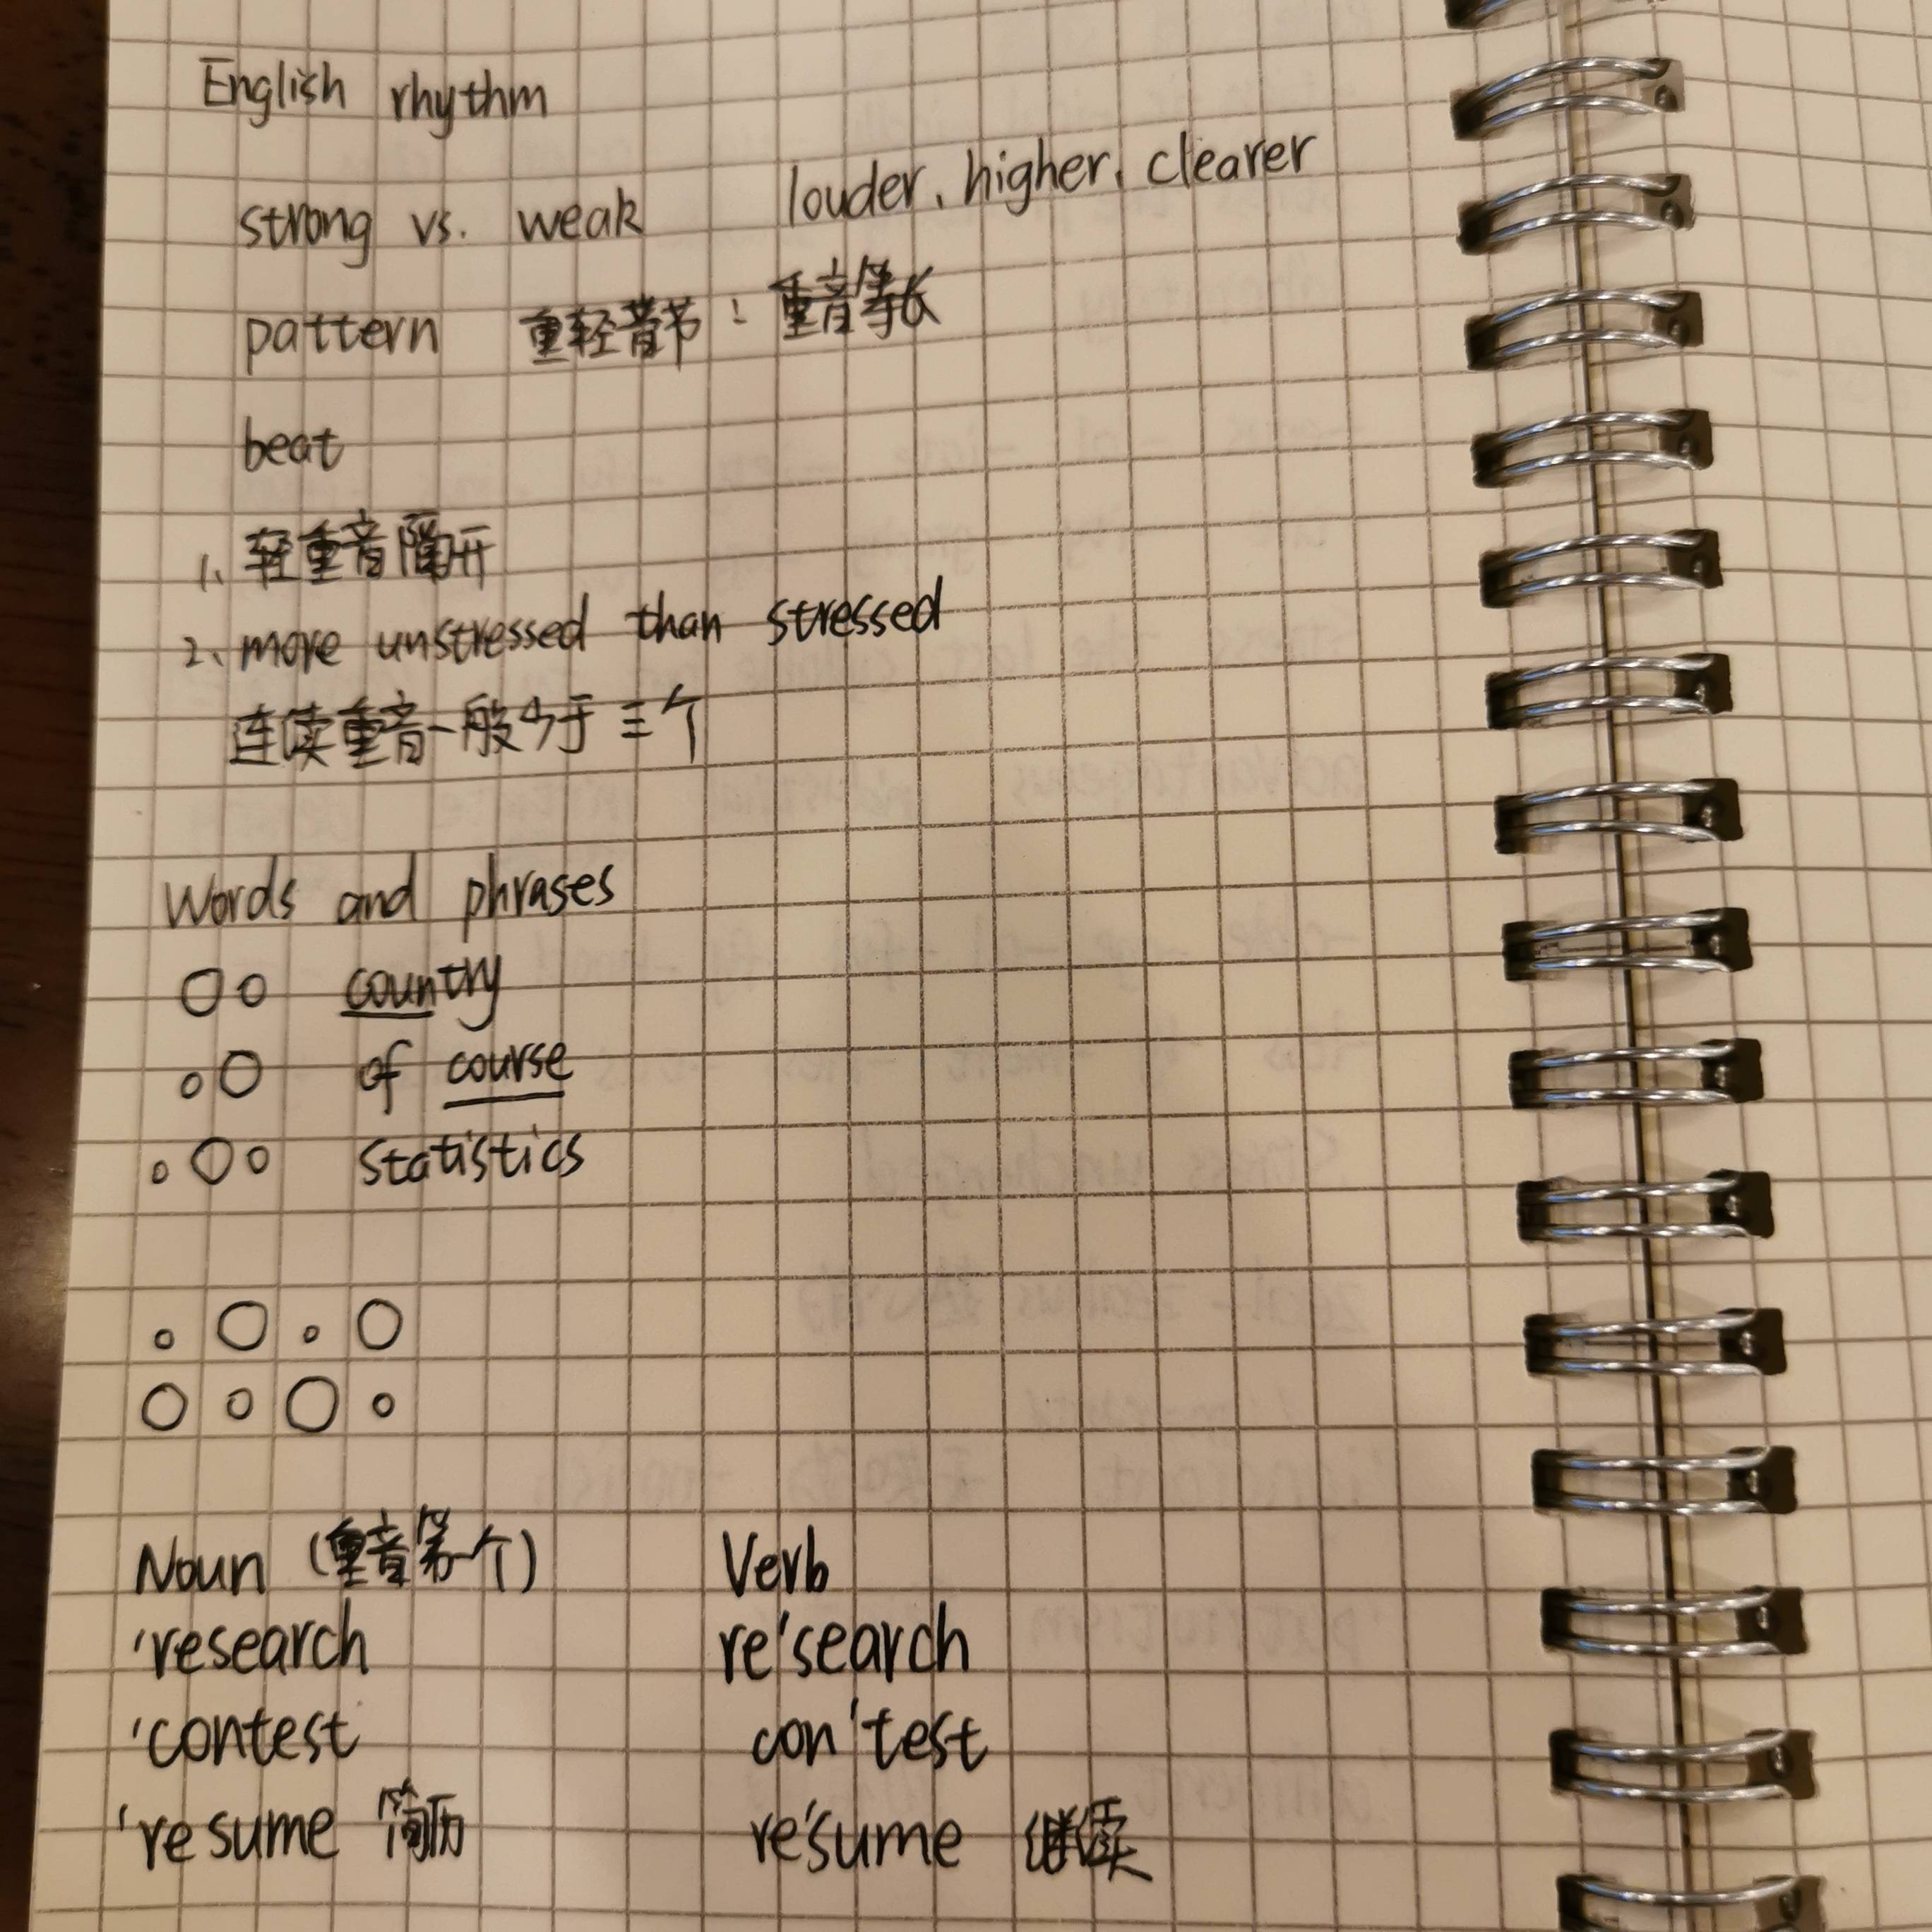 English rhythm
strong vs. weak louder, higher, clearer
pattern 重轻音节: 重音等长
beat
1、轻重音隔开
2、more unstressed than stressed
连读重音一般少于三个
Words and phrases
○○ country
○○ of course
○○○ statistics
○○○○
○○○○
Noun (重音第一个) Verb
'research re'search
'contest con'test
'resume 简历 re'sume 继续